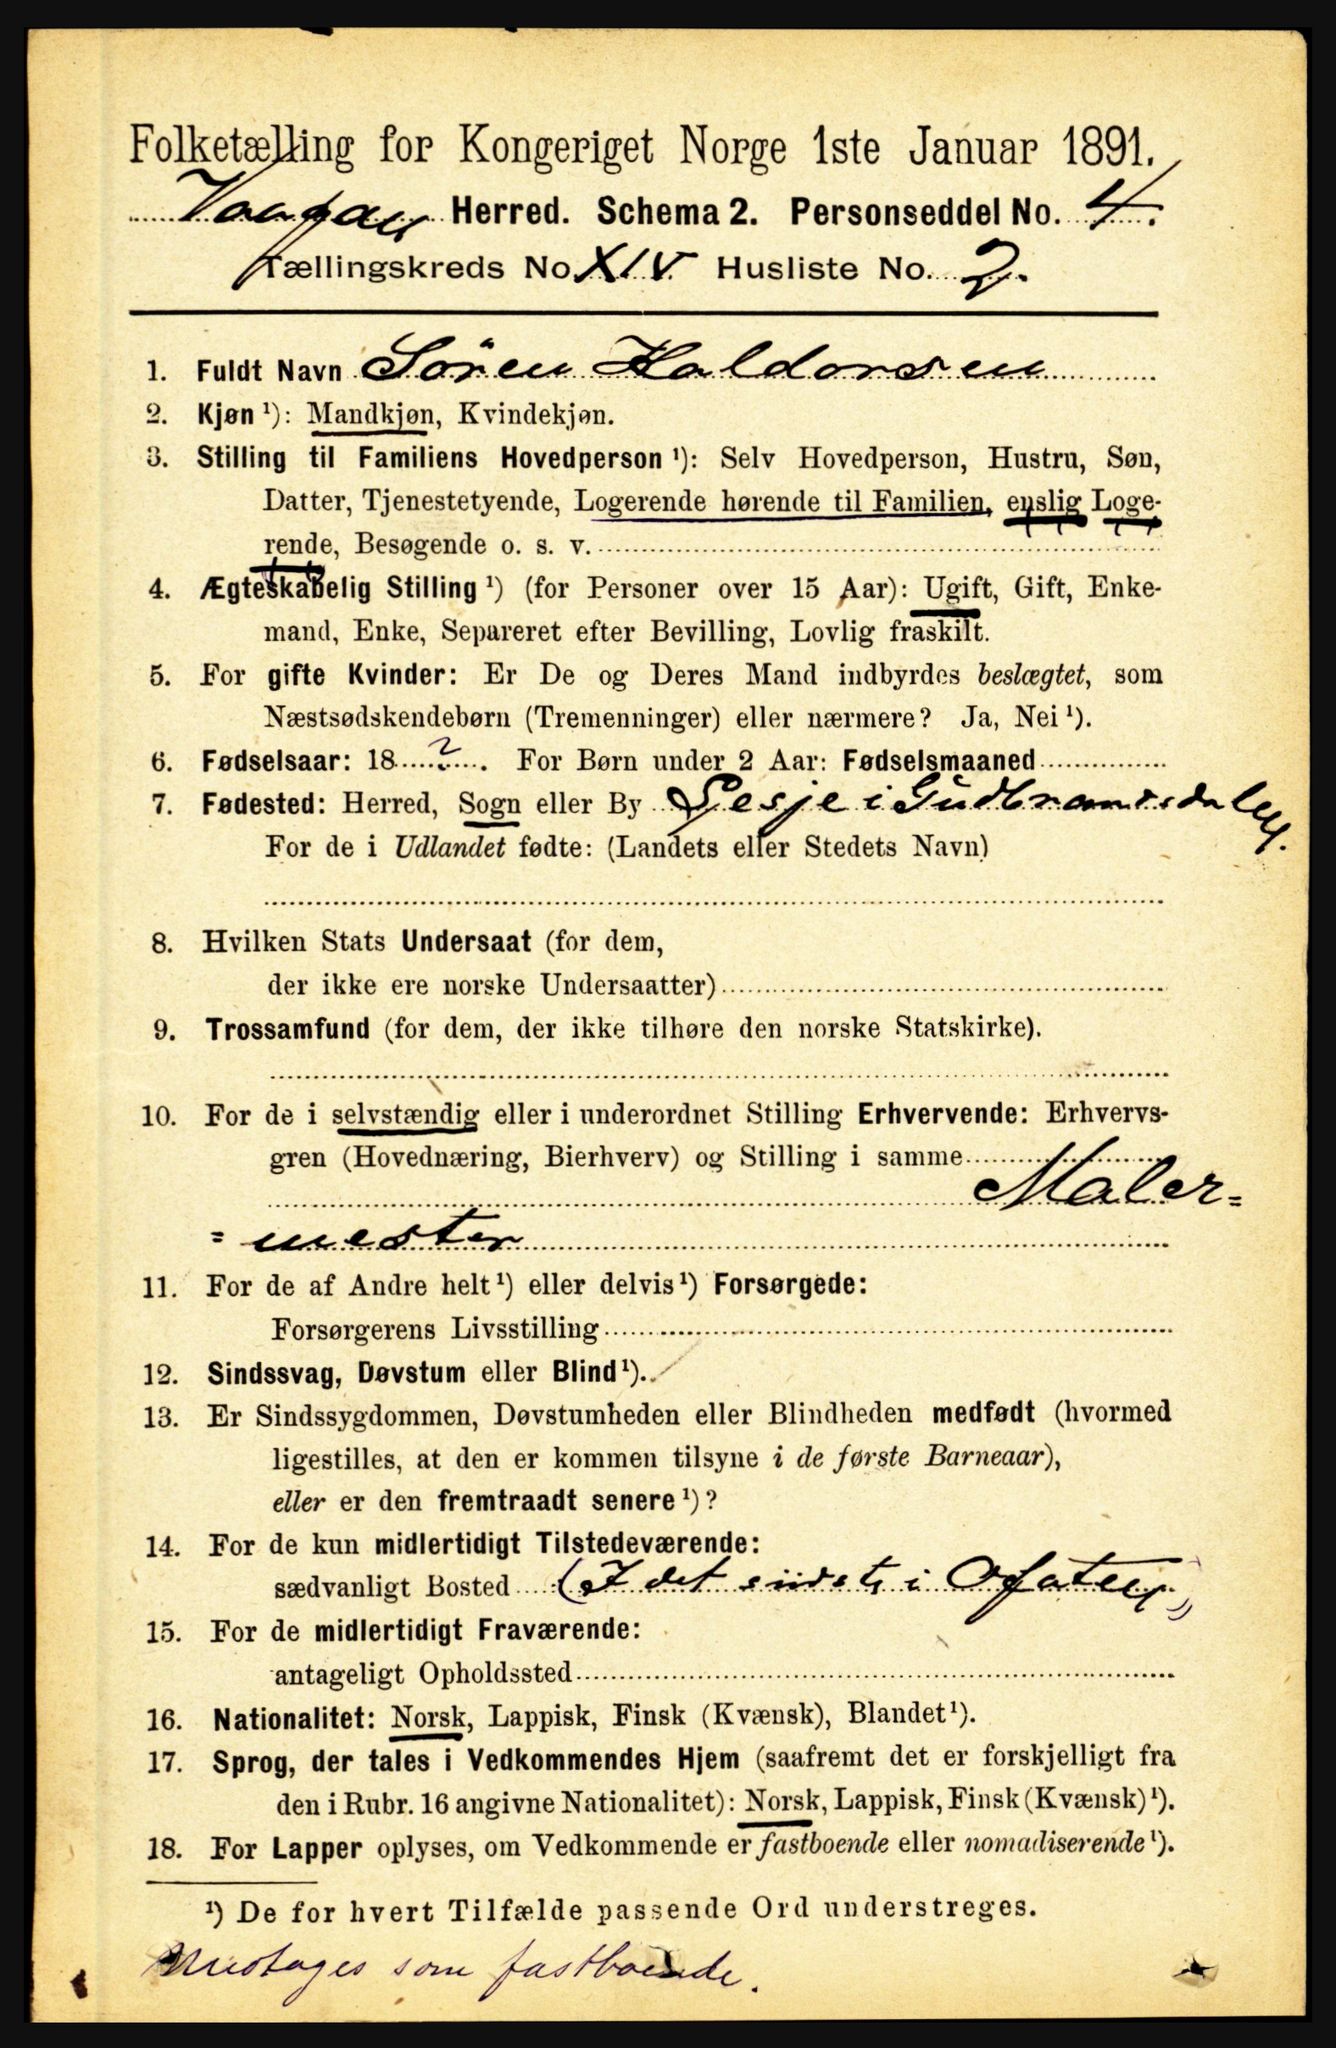 Folketælling for Kongeriget Norge 1ste Januar 1891.
Vaagan Herred. Schema 2. Personseddel No. 4.
Tællingskreds No. XIV. Husliste No. 2.
1. Fuldt Navn Sören Haldorsen
2. Kjøn ¹): Mandkjøn, Kvindekjøn.
3. Stilling til Familiens Hovedperson ¹): Selv Hovedperson, Hustru, Søn,
Datter, Tjenestetyende, Logerende hørende til Familien, enslig Loge-
rende, Besøgende o. s. v.
4. Ægteskabelig Stilling ¹) (for Personer over 15 Aar): Ugift, Gift, Enke-
mand, Enke, Separeret efter Bevilling, Lovlig fraskilt.
5. For gifte Kvinder: Er De og Deres Mand indbyrdes beslægtet, som
Næstsødskendebørn (Tremenninger) eller nærmere? Ja, Nei ¹).
6. Fødselsaar: 18 ? . For Børn under 2 Aar: Fødselsmaaned
7. Fødested: Herred, Sogn eller By Lesje i Gudbrandsdalen.
For de i Udlandet fødte: (Landets eller Stedets Navn)
8. Hvilken Stats Undersaat (for dem,
der ikke ere norske Undersaatter)
9. Trossamfund (for dem, der ikke tilhøre den norske Statskirke).
10. For de i selvstændig eller i underordnet Stilling Erhvervende: Erhvervs-
gren (Hovednæring, Bierhverv) og Stilling i samme
Maler=
=mester
11. For de af Andre helt ¹) eller delvis ¹) Forsørgede:
Forsørgerens Livsstilling
12. Sindssvag, Døvstum eller Blind ¹).
13. Er Sindssygdommen, Døvstumheden eller Blindheden medfødt (hvormed
ligestilles, at den er kommen tilsyne i de første Barneaar),
eller er den fremtraadt senere ¹)?
14. For de kun midlertidigt Tilstedeværende:
sædvanligt Bosted (I det sidste i Ofoten)
15. For de midlertidigt Fraværende:
antageligt Opholdssted
16. Nationalitet: Norsk, Lappisk, Finsk (Kvænsk), Blandet ¹).
17. Sprog, der tales i Vedkommendes Hjem (saafremt det er forskjelligt fra
den i Rubr. 16 angivne Nationalitet): Norsk, Lappisk, Finsk (Kvænsk) ¹).
18. For Lapper oplyses, om Vedkommende er fastboende eller nomadiserende ¹).
¹) De for hvert Tilfælde passende Ord understreges.
Antages som fastboende.